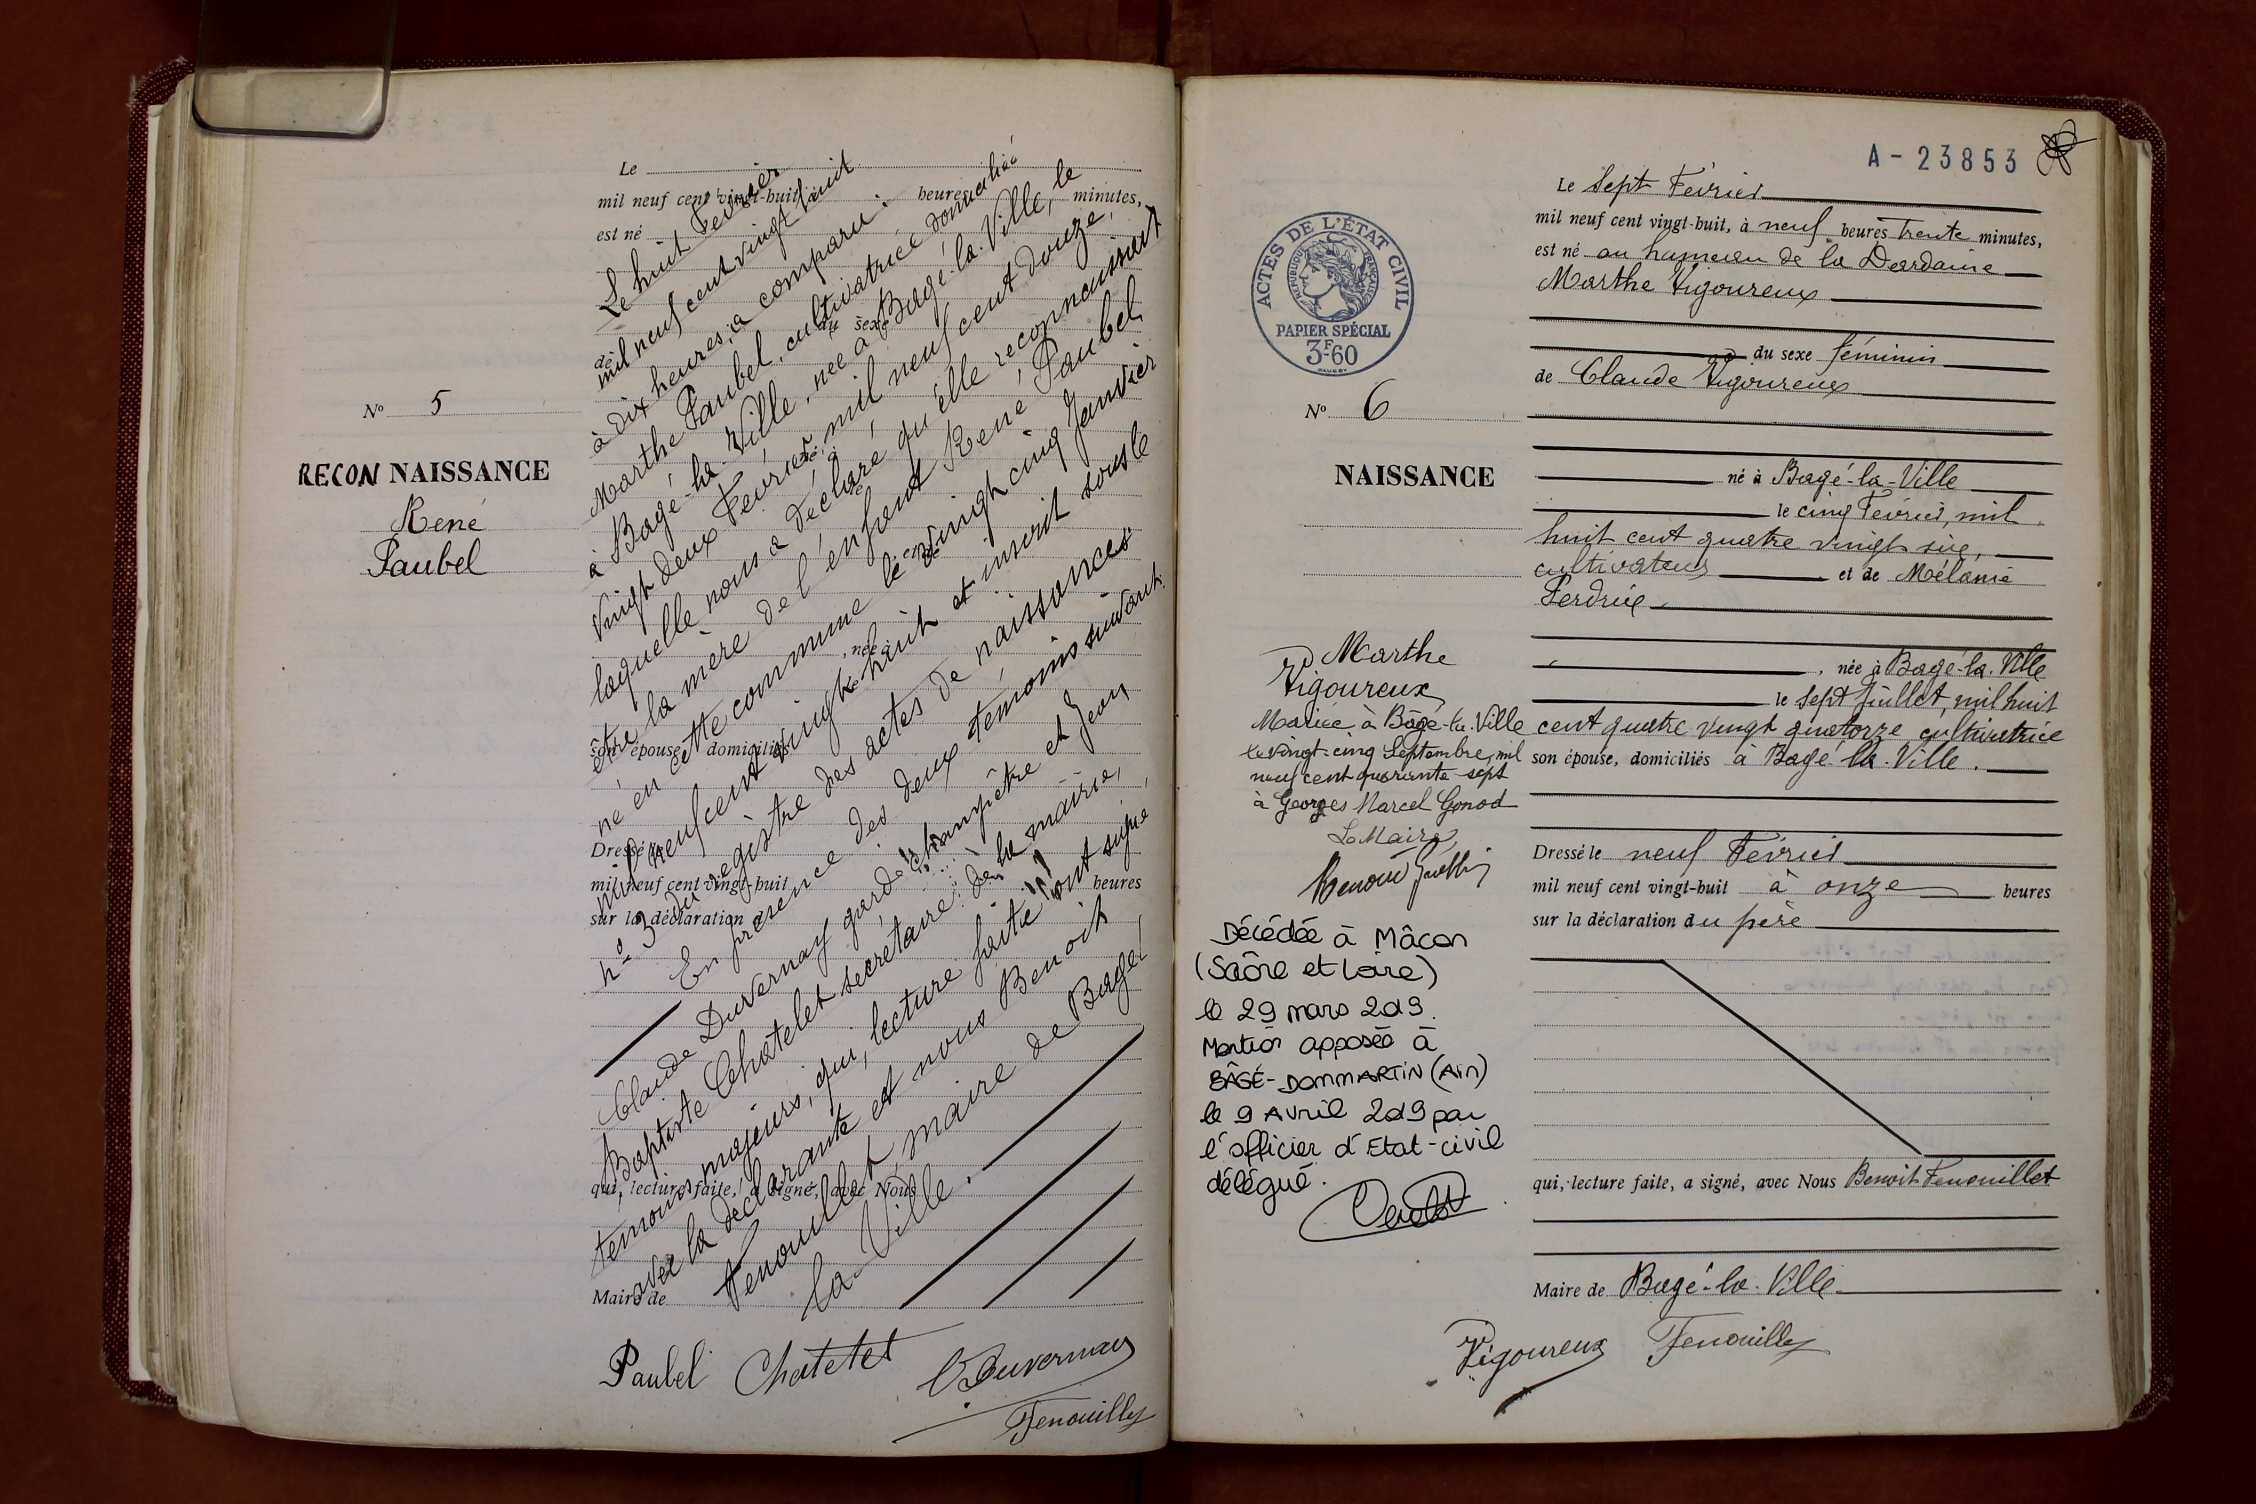 Le
mil neuf cent vingt-huit, à heures minutes,
est né
du sexe
de
né à
le
et de
, née à
le
son épouse, domiciliés
Dressé le
mil neuf cent vingt-huit heures
sur la déclaration d
qui, lecture faite, a signé, avec Nous
Maire de
No 5
RECONNAISSANCE
René
Paubel
Le huit Février
mil neuf cent vingt huit
à dix heures, a comparu:
Marthe Paubel, cultivatrice domiciliée
à Bagé-la-Ville, née à Bagé-la-Ville, le
vingt deux Février, mil neuf cent douze,
laquelle nous a déclaré qu'elle reconnaissait
être la mère de l'enfant René Paubel
né en cette commune le vingt cinq Janvier
mil neuf cent vingt huit et inscrit sous le
no 3 du registre des actes de naissances
En présence des deux témoins suivant:
Claude Duvernay garde-champêtre et Jean
Baptiste Chatelet secrétaire de la mairie,
témoins majeurs, qui, lecture faite ont signé
avec la déclarante et nous Benoit
Fenouillet maire de Bagé
la Ville.
Paubel Chatelet C Duvernay
Fenouillet
A - 23853
ACTES DE L'ÉTAT CIVIL
RÉPUBLIQUE FRANÇAISE
PAPIER SPÉCIAL
3F60
No 6
NAISSANCE
Marthe
Vigoureux
Mariée à Bâgé-la-Ville
le vingt-cinq Septembre, mil
neuf cent quarante-sept
à Georges Marcel Gonod
Le Maire,
Décédée à Mâcon
(Saône et Loire)
le 29 mars 2019.
Mention apposée à
BÂGÉ-DOMMARTIN (Ain)
le 9 Avril 2019 par
l'officier d'Etat-civil
délégué.
Le Sept Février
mil neuf cent vingt-huit, à neuf heures Trente minutes,
est né au hameau de la Dardaine
Marthe Vigoureux
du sexe féminin
de Claude Vigoureux
né à Bagé-la-Ville
le cinq Février, mil
huit cent quatre vingt six,
cultivateur et de Mélanie
Perdrix
, née à Bagé-la-Ville
le Sept Juillet, mil huit
cent quatre vingt quatorze cultivatrice
son épouse, domiciliés à Bagé-la-Ville.
Dressé le neuf Février
mil neuf cent vingt-huit à onze heures
sur la déclaration du père
qui, lecture faite, a signé, avec Nous Benoit Fenouillet
Maire de Bagé-la-Ville
Vigoureux Fenouillet